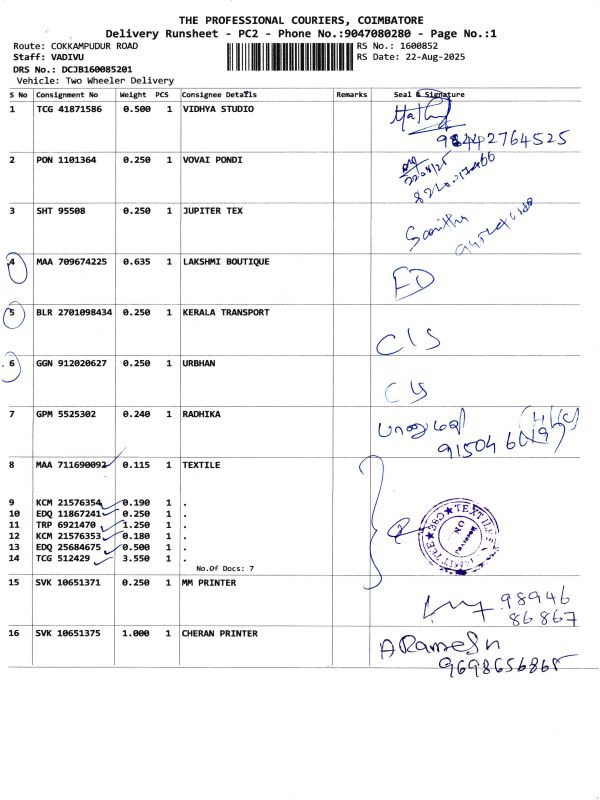 THE PROFESSIONAL COURIERS, COIMBATORE
Delivery Runsheet - PC2 - Phone No.:9047080280 - Page No.:1
Route: COKKAMPUDUR ROAD RS No.: 1600852
Staff: VADIVU RS Date: 22-Aug-2025
DRS No.: DCJB160085201
Vehicle: Two Wheeler Delivery
S No Consignment No Weight PCS Consignee Details Remarks Seal & Signature
1 TCG 41871586 0.500 1 VIDHYA STUDIO
98442764525
2 PON 1101364 0.250 1 VOVAI PONDI
22/08/25
3 SHT 95508 0.250 1 JUPITER TEX
4 MAA 709674225 0.635 1 LAKSHMI BOUTIQUE
ED
5 BLR 2701098434 0.250 1 KERALA TRANSPORT
C/S
6 GGN 912020627 0.250 1 URBHAN
7 GPM 5525302 0.240 1 RADHIKA
8 MAA 711690092 0.115 1 TEXTILE
9 KCM 21576354 0.190 1 .
10 EDQ 11867241 0.250 1 .
11 TRP 6921470 1.250 1 .
12 KCM 21576353 0.180 1 .
13 EDQ 25684675 0.500 1 .
14 TCG 512429 3.550 1 .
No.Of Docs: 7
15 SVK 10651371 0.250 1 MM PRINTER
98946
86867
16 SVK 10651375 1.000 1 CHERAN PRINTER
A Ramesh
9698656865